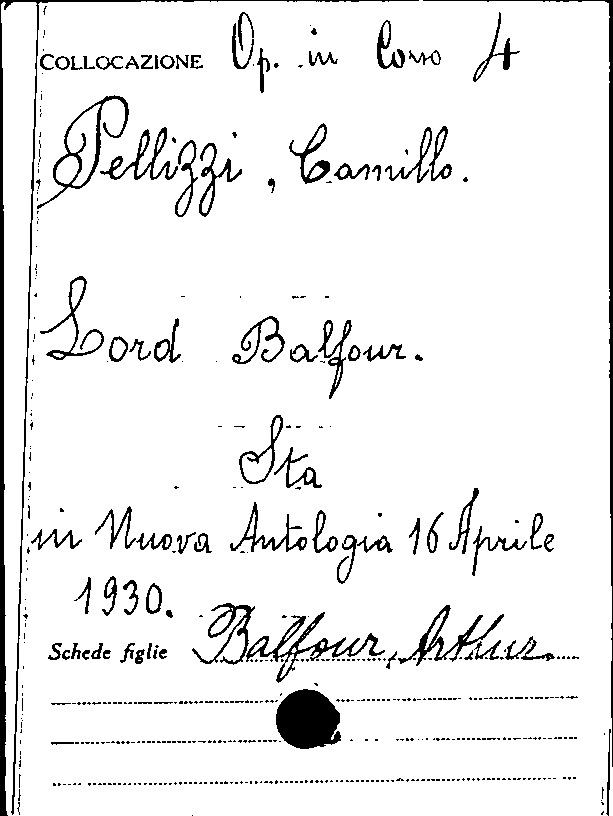 COLLOCAZIONE Op. in Corso 4
Pellizzi, Camillo.
Lord Balfour.
Sta
in Nuova Antologia 16 Aprile
1930.
Schede figlie Balfour, Arthur.